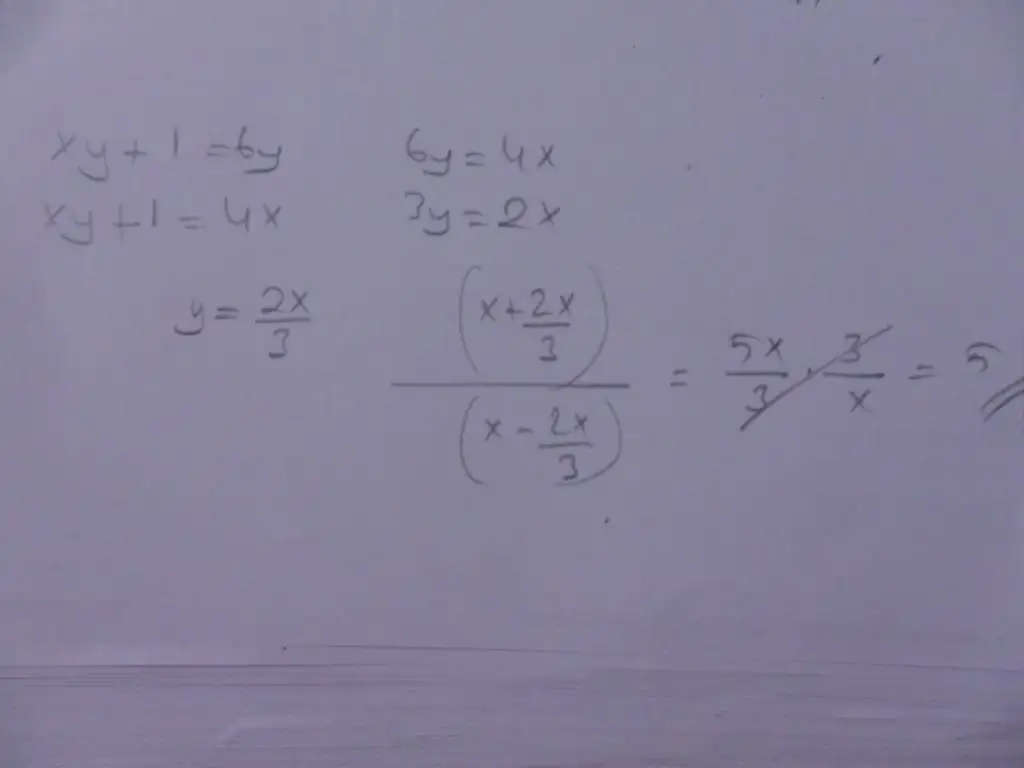 xy + 1 = 6y 6y = 4x
xy + 1 = 4x 3y = 2x
y = 2x/3 (x + 2x/3) / (x - 2x/3) = 5x/3 . 3/x = 5